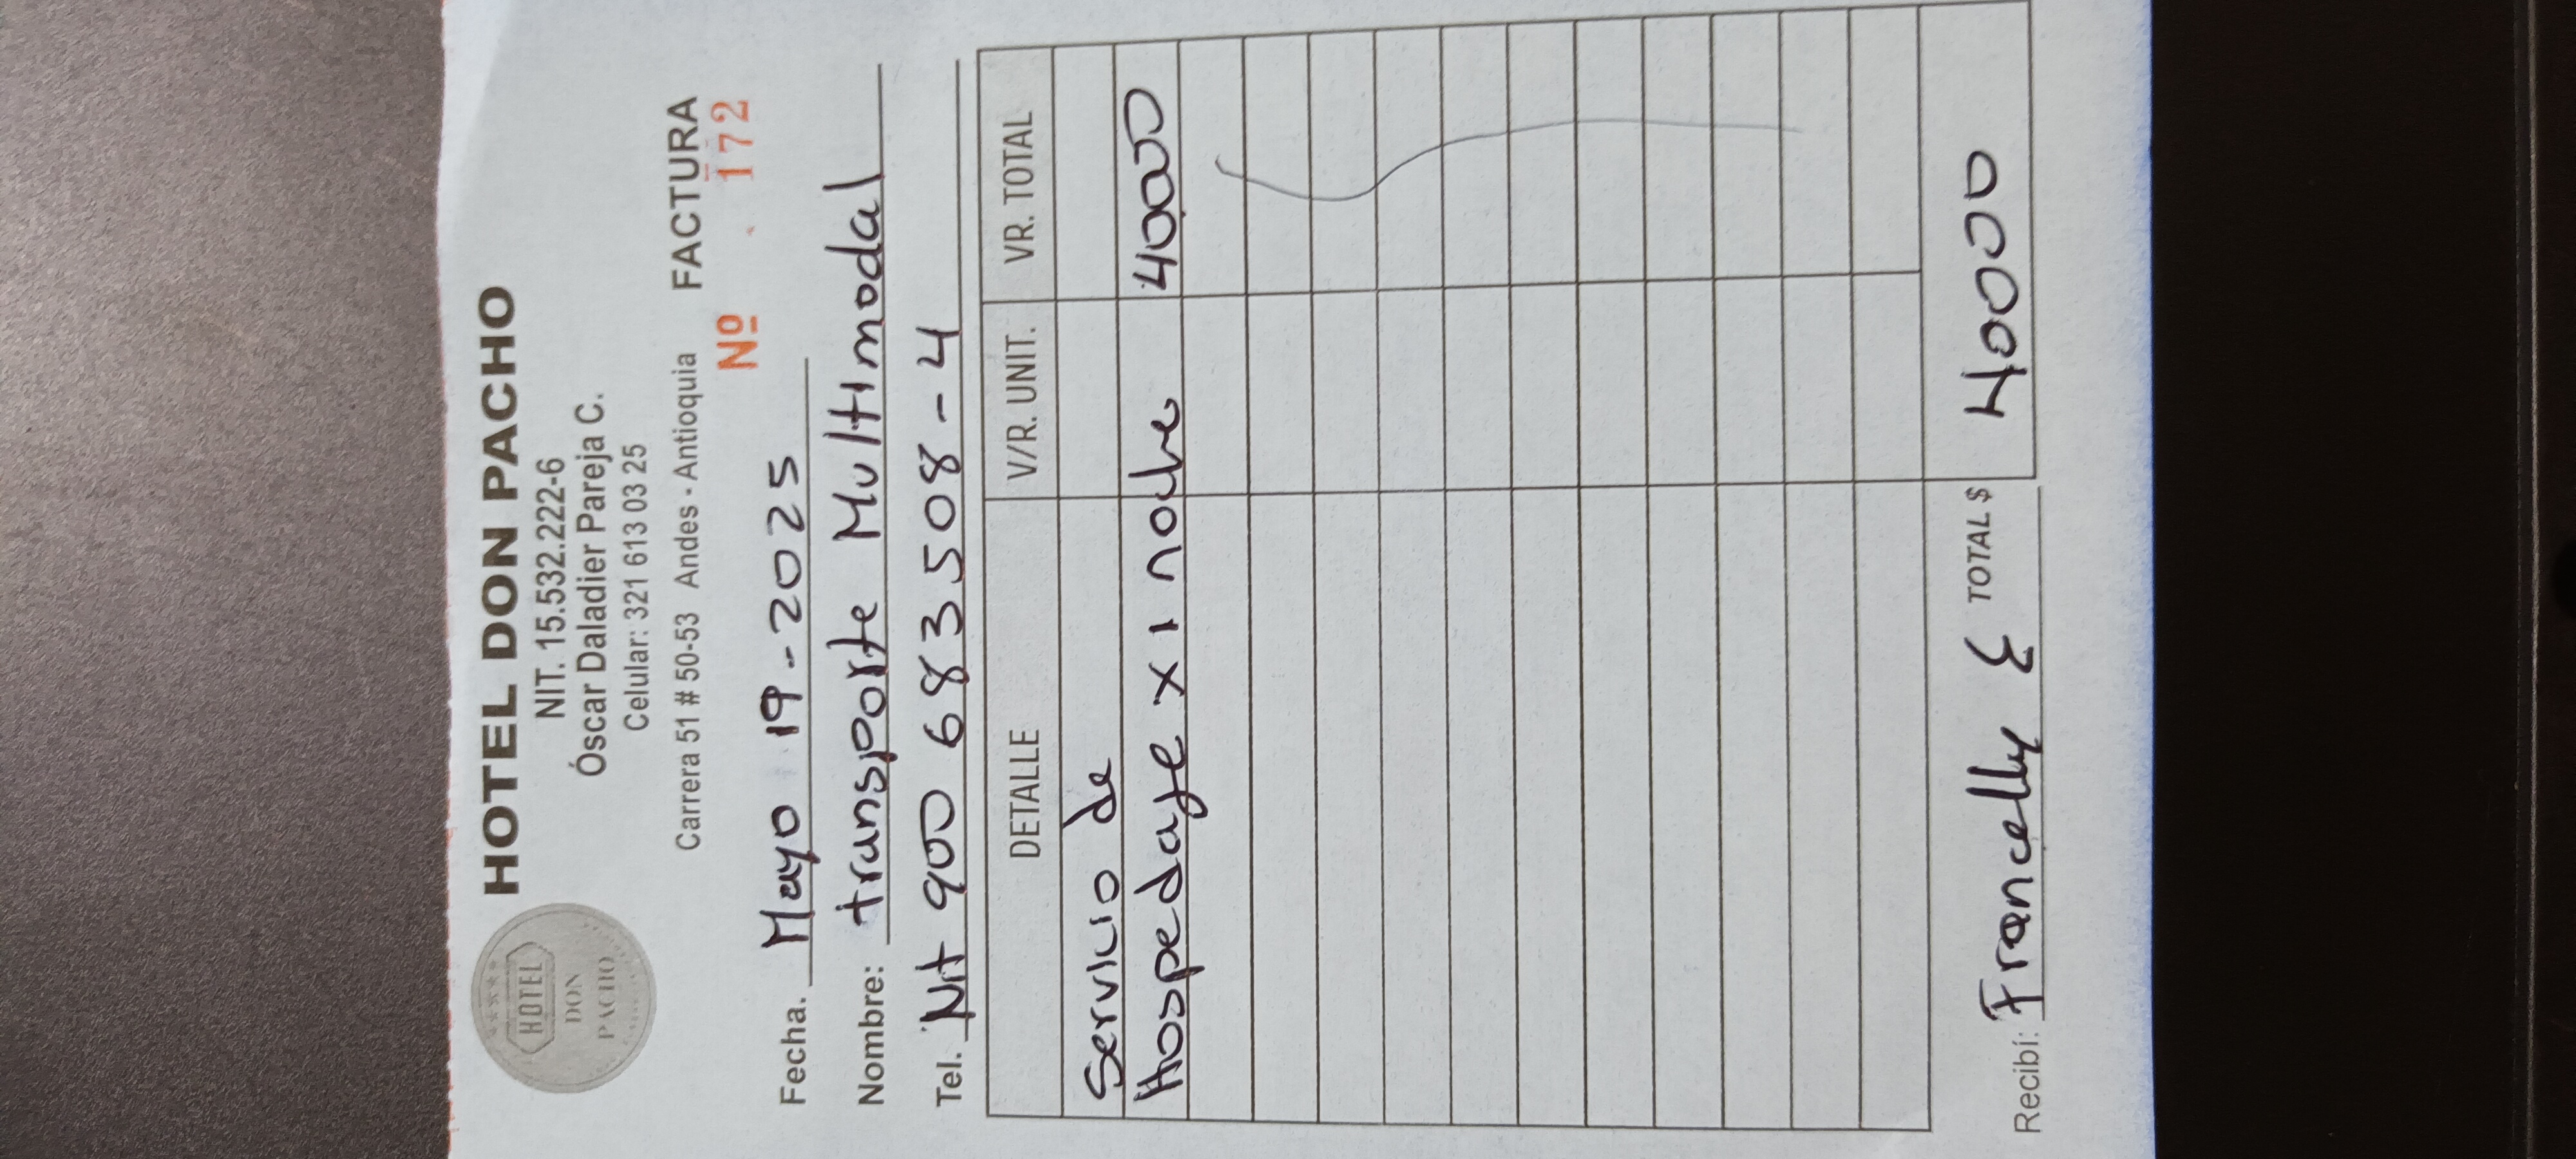 HOTEL
DON
PACHO
HOTEL DON PACHO
NIT. 15.532.222-6
Óscar Daladier Pareja C.
Celular: 321 613 03 25
Carrera 51 # 50-53 Andes - Antioquia FACTURA
Nº 172
Fecha. Mayo 19-2025
Nombre: transporte Multimodal
Tel. Nit 900 683508-4
DETALLE V/R. UNIT. VR. TOTAL
Servicio de
Hospedaje x 1 noche 40000
Recibí: Francelly E TOTAL $ 40000